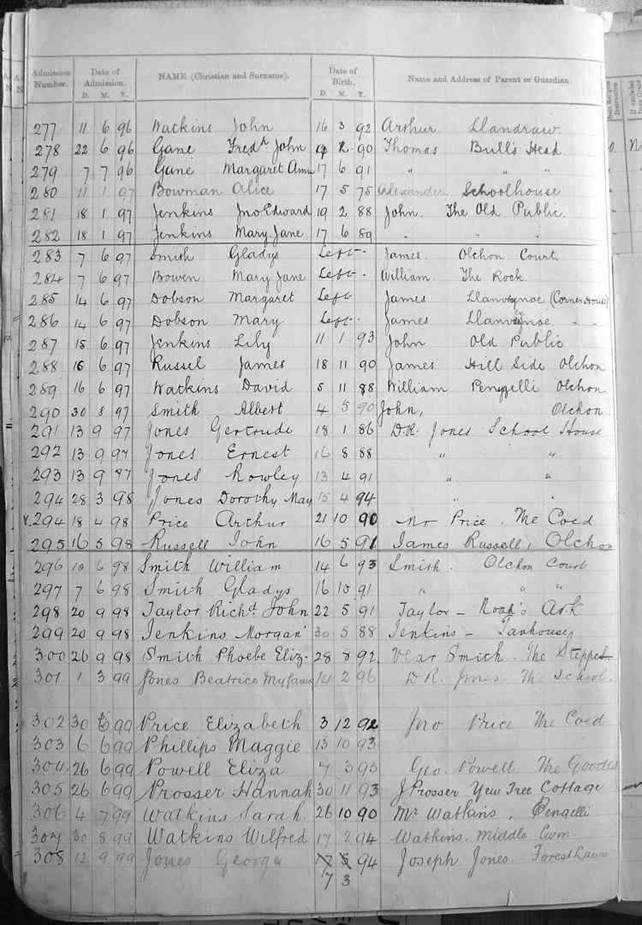 Admission Number. Date of Admission. NAME (Christian and Surname). Date of Birth. Name and Address of Parent or Guardian.
D. M. Y. D. M. Y.
277 11 6 96 Watkins John 16 3 92 Arthur Llandraw
278 22 6 96 Gane Fredk John 4 2 90 Thomas Bull's Head
279 7 7 96 Gane Margaret Ann 17 6 91 " " "
280 11 1 97 Bowman Alice 17 5 75 Alexander Schoolhouse
281 18 1 97 Jenkins Jno Edward 19 2 88 John. The Old Public
282 18 1 97 Jenkins Mary Jane 17 6 89 " " "
283 7 6 97 Smith Gladys Left. James Olchon Court
284 7 6 97 Bowen Mary Jane Left. William The Rock
285 14 6 97 Dobson Margaret Left James Llanvynoe (Corner House)
286 14 6 97 Dobson Mary Left. James Llanvynoe " "
287 15 6 97 Jenkins Lily 11 1 93 John Old Public
288 16 6 97 Russel James 18 11 90 James Hill Side Olchon
289 16 6 97 Watkins David 5 11 88 William Pengelli Olchon
290 30 8 97 Smith Albert 4 5 90 John, Olchon
291 13 9 97 Jones Gertrude 18 1 86 D.R. Jones School House
292 13 9 97 Jones Ernest 16 8 88 " "
293 13 9 97 Jones Rowley 13 4 91 " "
294 28 3 98 Jones Dorothy May 15 4 94 " "
294 18 4 98 Price Arthur 21 10 90 Mr Price. The Coed
295 16 5 98 Russell John 16 5 91 James Russell, Olchon
296 10 6 98 Smith William 14 6 93 Smith. Olchon Court
297 7 6 98 Smith Gladys 16 10 91 " " "
298 20 9 98 Taylor Richd John 22 5 91 Taylor - Noah's Ark
299 20 9 98 Jenkins Morgan 30 5 88 Jenkins - Tanhouse
300 26 9 98 Smith Phoebe Eliz. 28 8 92 Smith. The Steppes
301 1 3 99 Jones Beatrice 14 2 96 D.R. Jones The School
302 30 5 99 Price Elizabeth 3 12 92 Jno Price The Coed
303 6 6 99 Phillips Maggie 13 10 93
304 26 6 99 Powell Eliza 7 3 95 Geo. Powell The
305 26 6 99 Prosser Hannah 30 11 93 J Prosser Yew Tree Cottage
306 4 7 99 Watkins Sarah 26 10 90 Mr Watkins, Pengelli
307 30 8 99 Watkins Wilfred 17 2 94 Watkins. Middle Cwm
308 12 9 99 Jones George 94 Joseph Jones. Forest Lawn
7 3